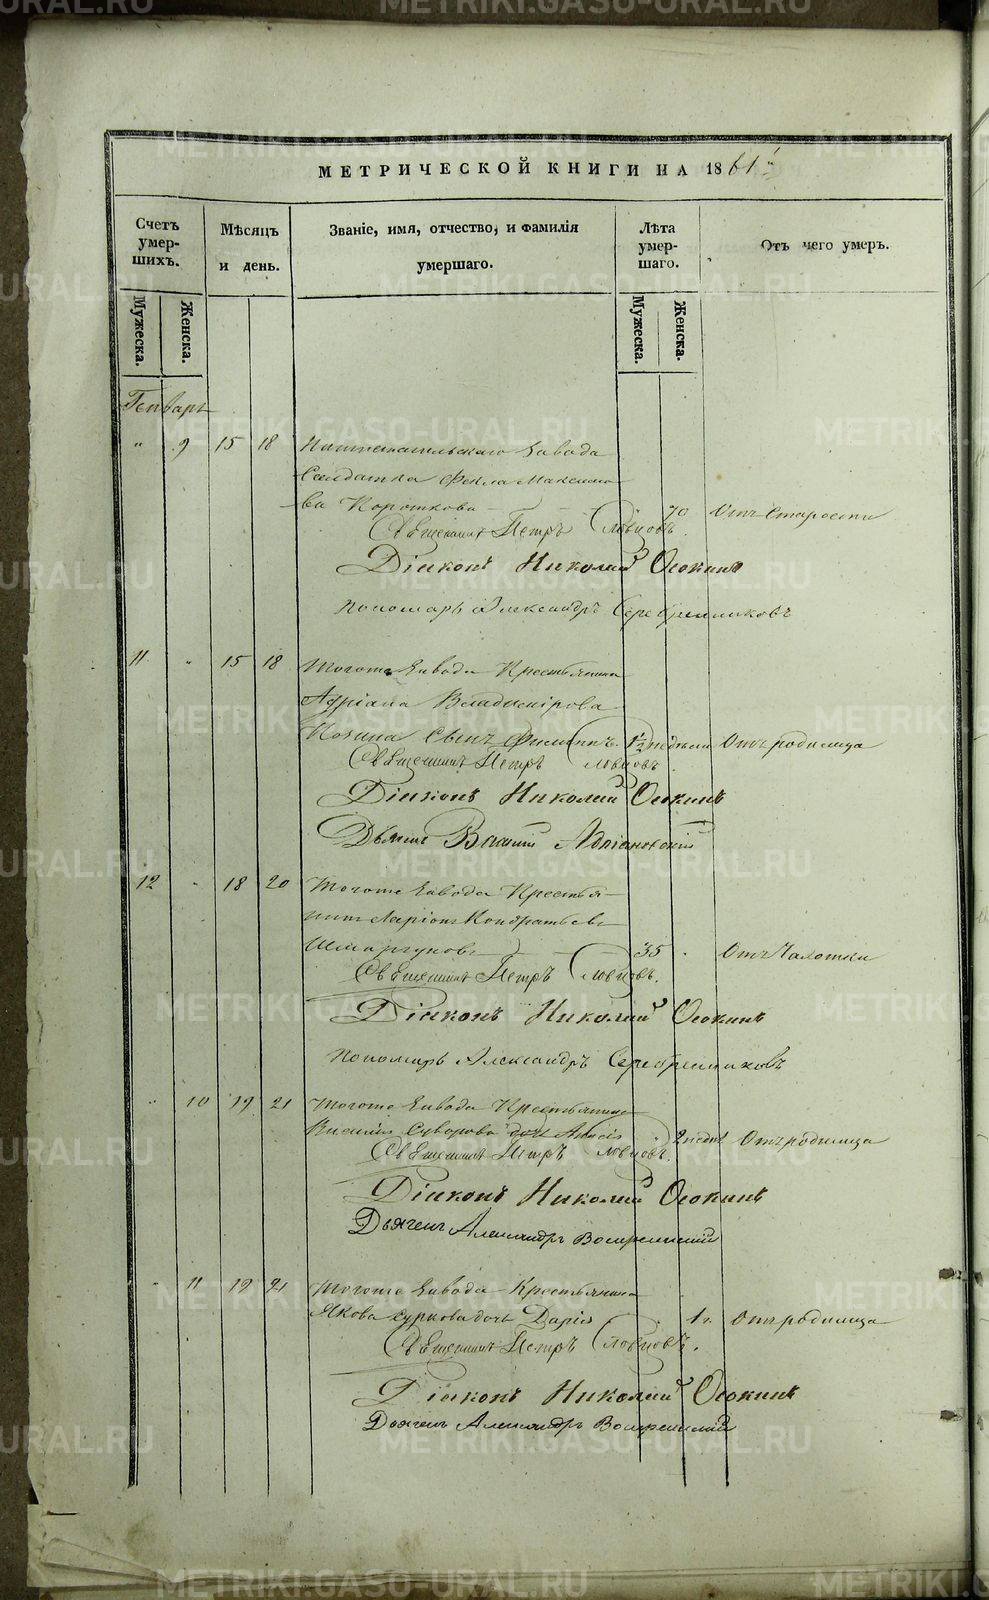 МЕТРИЧЕСКОЙ КНИГИ НА 1861
Счетъ умер-шихъ.
Мѣсяцъ и день.
Званіе, имя, отчество, и фамилія умершаго.
Лѣта умер-шаго.
Отъ чего умеръ.
Мужеска.
Женска.
Мужеска.
Женска.
Генварь
" 9 15 18 завода
Солдатка Фекла Максимо-
ва Короткова 70 Отъ старости
Священникъ Петръ Словцовъ.
Діаконъ Николай Осокинъ
Пономарь Александръ Серебренниковъ
11 " 15 18 Тогоже завода Крестьянина
Адріана Владимірова
сынъ Филиппъ 1½ недѣли Отъ родимца
Священникъ Петръ Словцовъ.
Діаконъ Николай Осокинъ
Дьячекъ Адріановскій
12 " 18 20 Тогоже завода Крестья-
нинъ Ларіонъ Кондратьевъ
35 " Отъ Чахотки
Священникъ Петръ Словцовъ.
Діаконъ Николай Осокинъ
Пономарь Александръ Серебренниковъ
" 10 19 21 Тогоже завода Крестьянина
Василія Суворова дочь 2 недѣл Отъ родимца
Священникъ Петръ Словцовъ.
Діаконъ Николай Осокинъ
Дьячекъ Александръ Воскресенскій
" 11 19 21 Тогоже завода Крестьянина
Якова Суркова дочь Дарія 1 г. Отъ родимца
Священникъ Петръ Словцовъ.
Діаконъ Николай Осокинъ
Дьячекъ Александръ Воскресенскій
METRIKI.GASO-URAL.RU